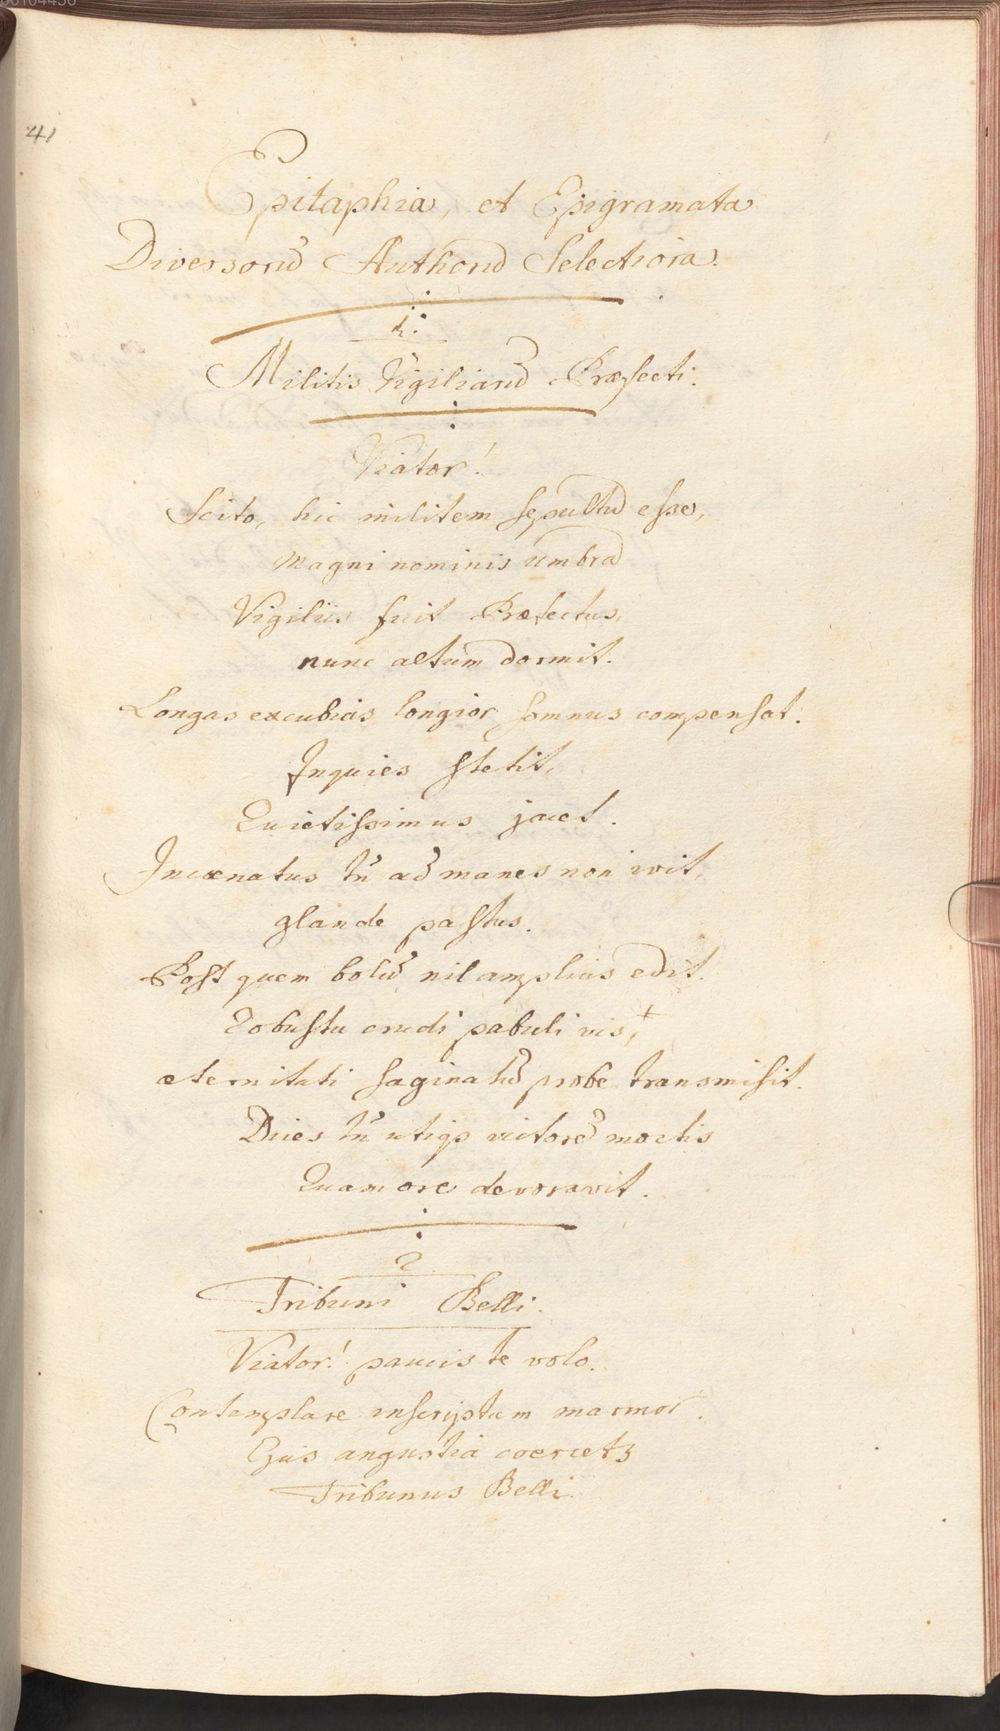 41
Epitaphia, et Epigramata
Diversorũ Authorũ Selectiora.
1.
Militis Vigiliarũ Præfecti.
Viator!
Scito, hic militem sepultũ esse,
Magni nominis umbrã
Vigiliis fuit Præfectus,
nunc altum dormit.
Longas excubias longior somnus compensat.
Inquies stetit,
Quietissimus jacet.
Incænatus tñ ad manes non ivit,
glande pastus.
Post quem bolũ nil amplius edit.
Robusta crudi pabuli vis, +
æternitati saginatũ probe transmisit.
Dries tñ utiqȝ victorẽ moctis
Quam ore devoravit.
2
Tribuni Belli.
Viator! paucis te volo.
Contemplare inscriptum marmor.
Ejus angustia coercetȝ
Tribunus Belli.